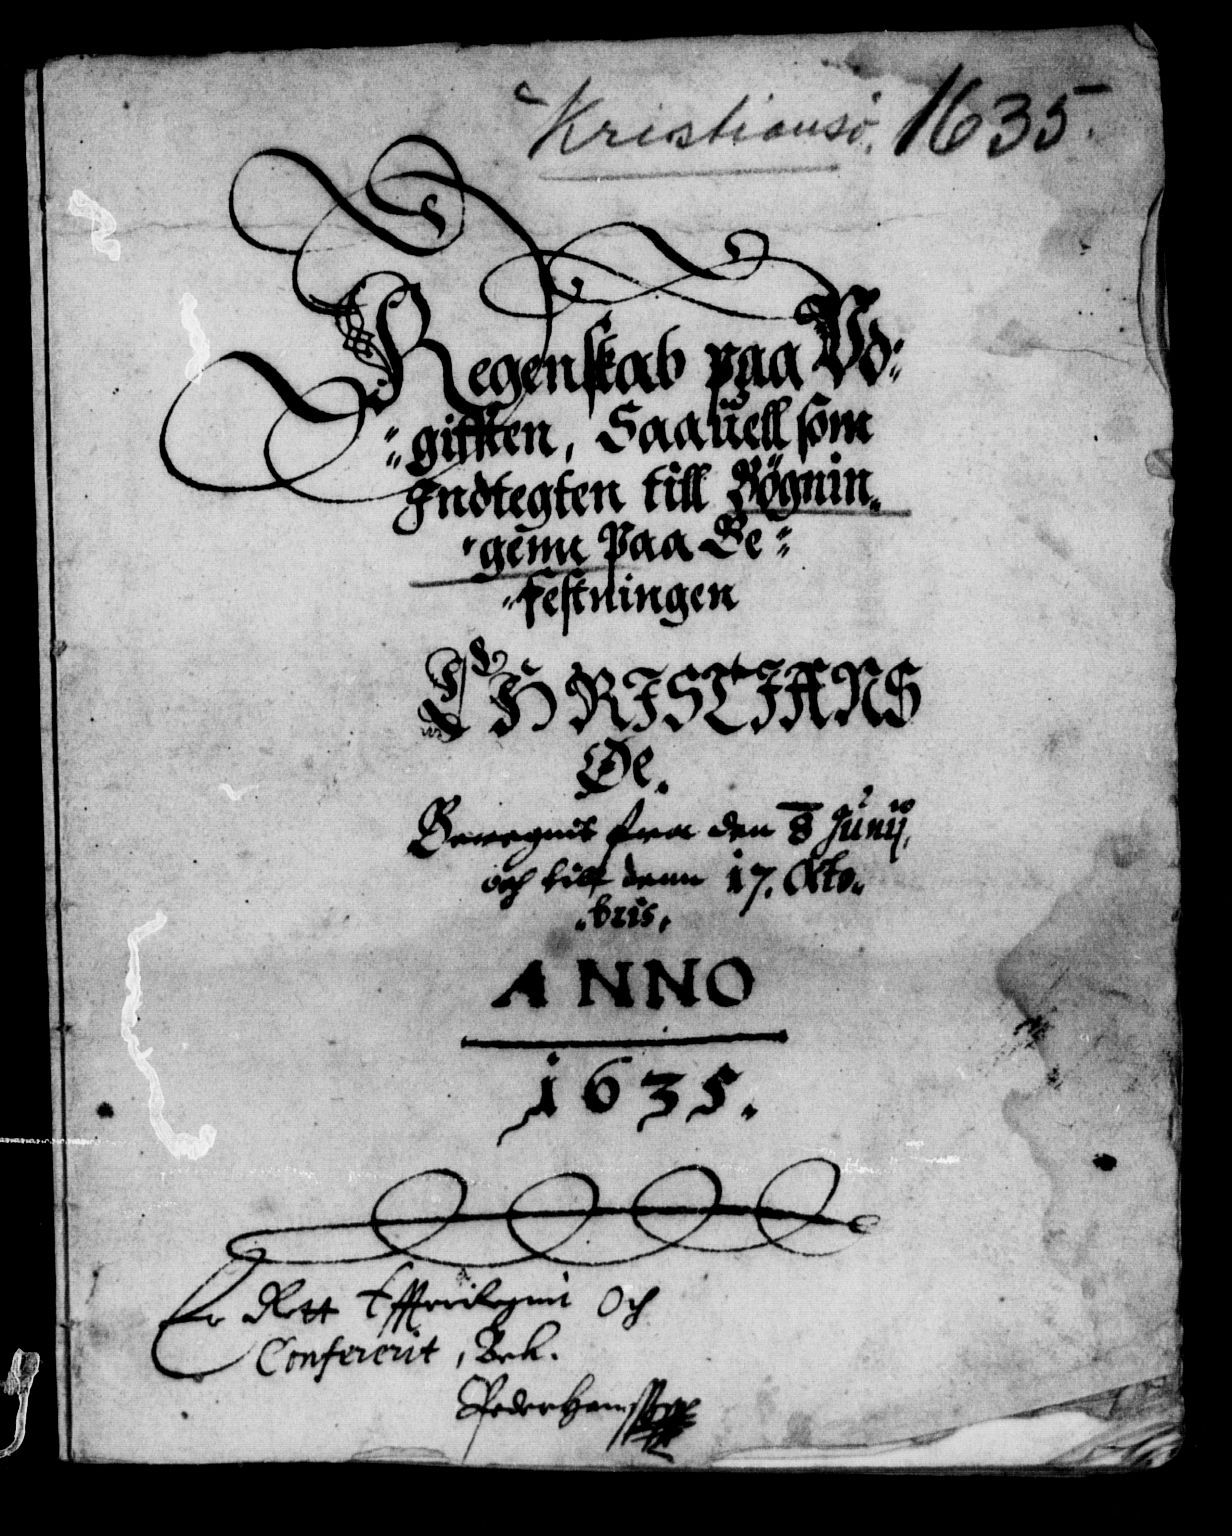 Kristiansö. 1635.
Regenskab paa Vd=
=gifften, Saauell som
Indtegten till Bögnin=
=genn paa Be=
=festningen
CHRISTIANS
Øe.
Beregnit fra den 8 Junij,
och till denn 17. Octo=
=bris.
ANNO
1635.
Er Rett Offuerlegnit Och
Confererit, Bek.
Peder Hans